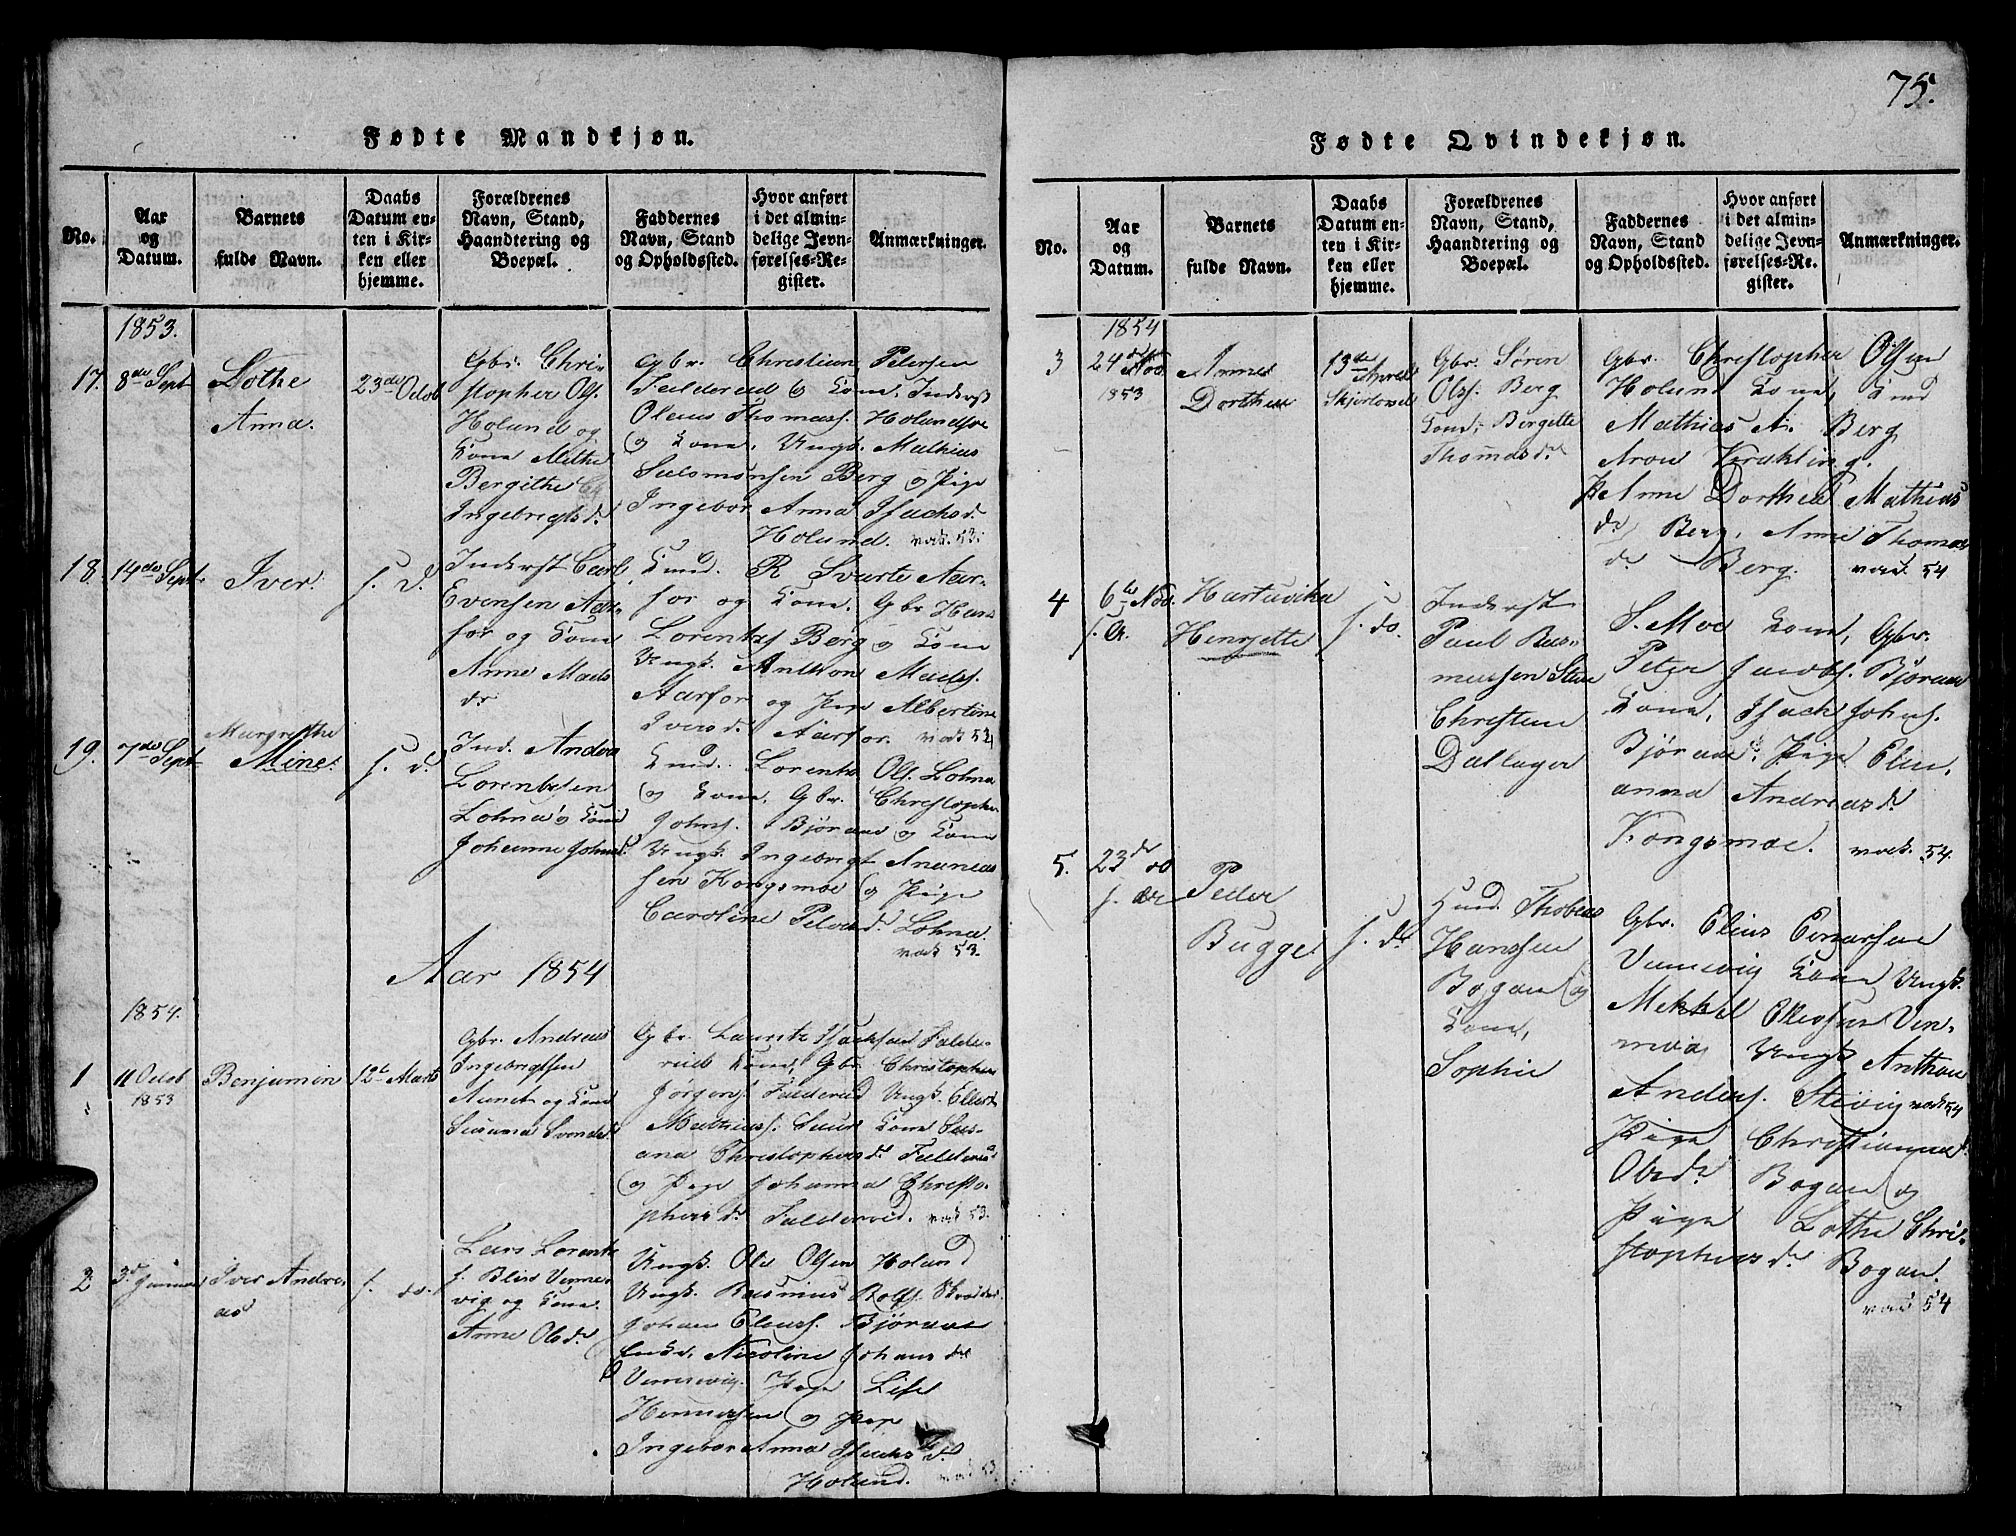 75.
Fødte Mandkjøn.
No.
Aar og Datum.
Barnets fulde Navn.
Daabs Datum enten i Kirken eller hjemme.
Forældrenes Navn, Stand, Haandtering og Boepæl.
Faddernes Navn, Stand og Opholdssted.
Hvor anført i det almindelige Jevnførelses-Register.
Anmærkninger.
1853.
17. 8de Sept
Lothe
Anna.
23de Octob
Gbr. Chri-
stopher Ols.
Holund og
Kone Methe
Bergithe
Ingebrigtsdr
Gbr. Christian Petersen
Falderud & Kone, Inderst
Olaus Thomass. Holundsve
og Kone, Ungk. Mathias
Salomonsen Berg og Pige
Ingebor Anna Isachsdr
Holund. vac. 53.
18. 14de Sept.
Iver.
s. d.
Inderst Carl
Evensen Aar-
for og Kone
Anne Mads
dr
Huud. R Svarte Aar-
for og Kone. Gbr Hans
Lorentzs Berg og Kone
Ungk. Anthon Madss.
Aarfor og Pige Albertine
Iversdr. Aarfor. vac 52
19. 7de Sept
Margrethe
Mine.
s. d.
Ind. Andrea
Lorentzen
Lohna og Kone
Johanne Johnsd.
Huud. Lorents Ols. Lohna
og Kone, Gbr. Christopher
Johns. Bjøraae og Kone
Ungk. Ingebrigt Ananias
sen Kongsmoe og Pige
Caroline Petersdr. Lohna.
vac 53.
Aar 1854
1854.
1 11 Octob
1853
Benjamin
12te Marts
Gbr. Andreas
Ingebrigtsen
Aunet og Kone
Susanna Svendsd.
Gbr. Lauritz Isachsen Falde-
rud Kone, Gbr Christopher
Jørgens. Falderud Ungk. Elert
Mathiass. Kone Sus-
ana Christophersdr. Falderud
og Pige Johanna Christo-
phersdr. Falderud. vac 53.
2 3d Januar
Iver Andre-
as
s. do.
Lars Lorentz
s. Vemes-
vig og Kone.
Anne Olsdr
Ungk. Ole Olsen Holund
Ungk. Rasmus Rolfs.
Johan Eliass. Bjøraae
Enke, Nicoline Johansdr
Vemesvig. Pige Lise
og Pige
Ingebor Anna Isachsdr.
Holund. vac 53
Fødte Qvindekjøn.
No.
Aar og Datum.
Barnets fulde Navn.
Daabs Datum enten i Kirken eller hjemme.
Forældrenes Navn, Stand, Haandtering og Boepæl.
Faddernes Navn, Stand og Opholdssted.
Hvor anført i det almindelige Jevnførelses-Register.
Anmærkninger.
1854
3 24de Nov
1853
Anne
Dorthea
13de April
Gbr. Søren
Olss. Berg
Kone, Bergitte
Thomasdr.
Gbr. Christopher Olsen
Holund Kone,
Mathias A. Berg
Aron Kraklin g.
P. Anne Dorthea Mathias
dr Berg, Anne Thomas
dr Berg. vac. 54
4 6te Nov.
s. A.
Hartuvika
Henrjette
s. do.
Inderst
Paul Ras-
mussen
Christine
Dallager
S. Moe Kone, Gbr.
Peter Jacobs. Bjøraae
Kone, Isach Johns.
Bjøraae. Pige Elen.
anna Andreasdr
Kongsmoe. vac. 54.
5. 23de do
s. Ar
Peder
Bugge.
s. do
Huud. Thobias
Hanssen
Bogan og
Kone,
Sophie
Gbr. Elias Einarsen
Vemesvig Kone Ungk.
Mekkel Ellevsen Ven-
moa, Ungk Anthon
Anders. Stevig vac 54
Pige Christianna
Olsdr Bogan og
Pige Lothe Chri-
stophersdr Bogan.
vac 54